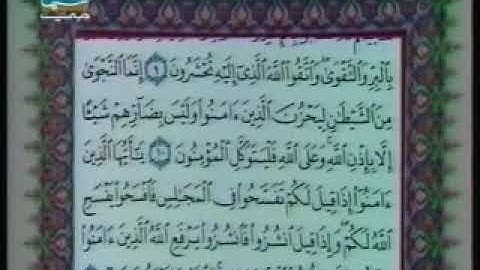 بِٱلۡبِرِّ وَٱلتَّقۡوَىٰۖ وَٱتَّقُواْ ٱللَّهَ ٱلَّذِيٓ إِلَيۡهِ تُحۡشَرُونَ ٩ إِنَّمَا ٱلنَّجۡوَىٰ
مِنَ ٱلشَّيۡطَٰنِ لِيَحۡزُنَ ٱلَّذِينَ ءَامَنُواْ وَلَيۡسَ بِضَآرِّهِمۡ شَيۡـًٔا
إِلَّا بِإِذۡنِ ٱللَّهِۚ وَعَلَى ٱللَّهِ فَلۡيَتَوَكَّلِ ٱلۡمُؤۡمِنُونَ ١٠ يَٰٓأَيُّهَا ٱلَّذِينَ
ءَامَنُوٓاْ إِذَا قِيلَ لَكُمۡ تَفَسَّحُواْ فِي ٱلۡمَجَٰلِسِ فَٱفۡسَحُواْ يَفۡسَحِ
ٱللَّهُ لَكُمۡۖ وَإِذَا قِيلَ ٱنشُزُواْ فَٱنشُزُواْ يَرۡفَعِ ٱللَّهُ ٱلَّذِينَ ءَامَنُواْ